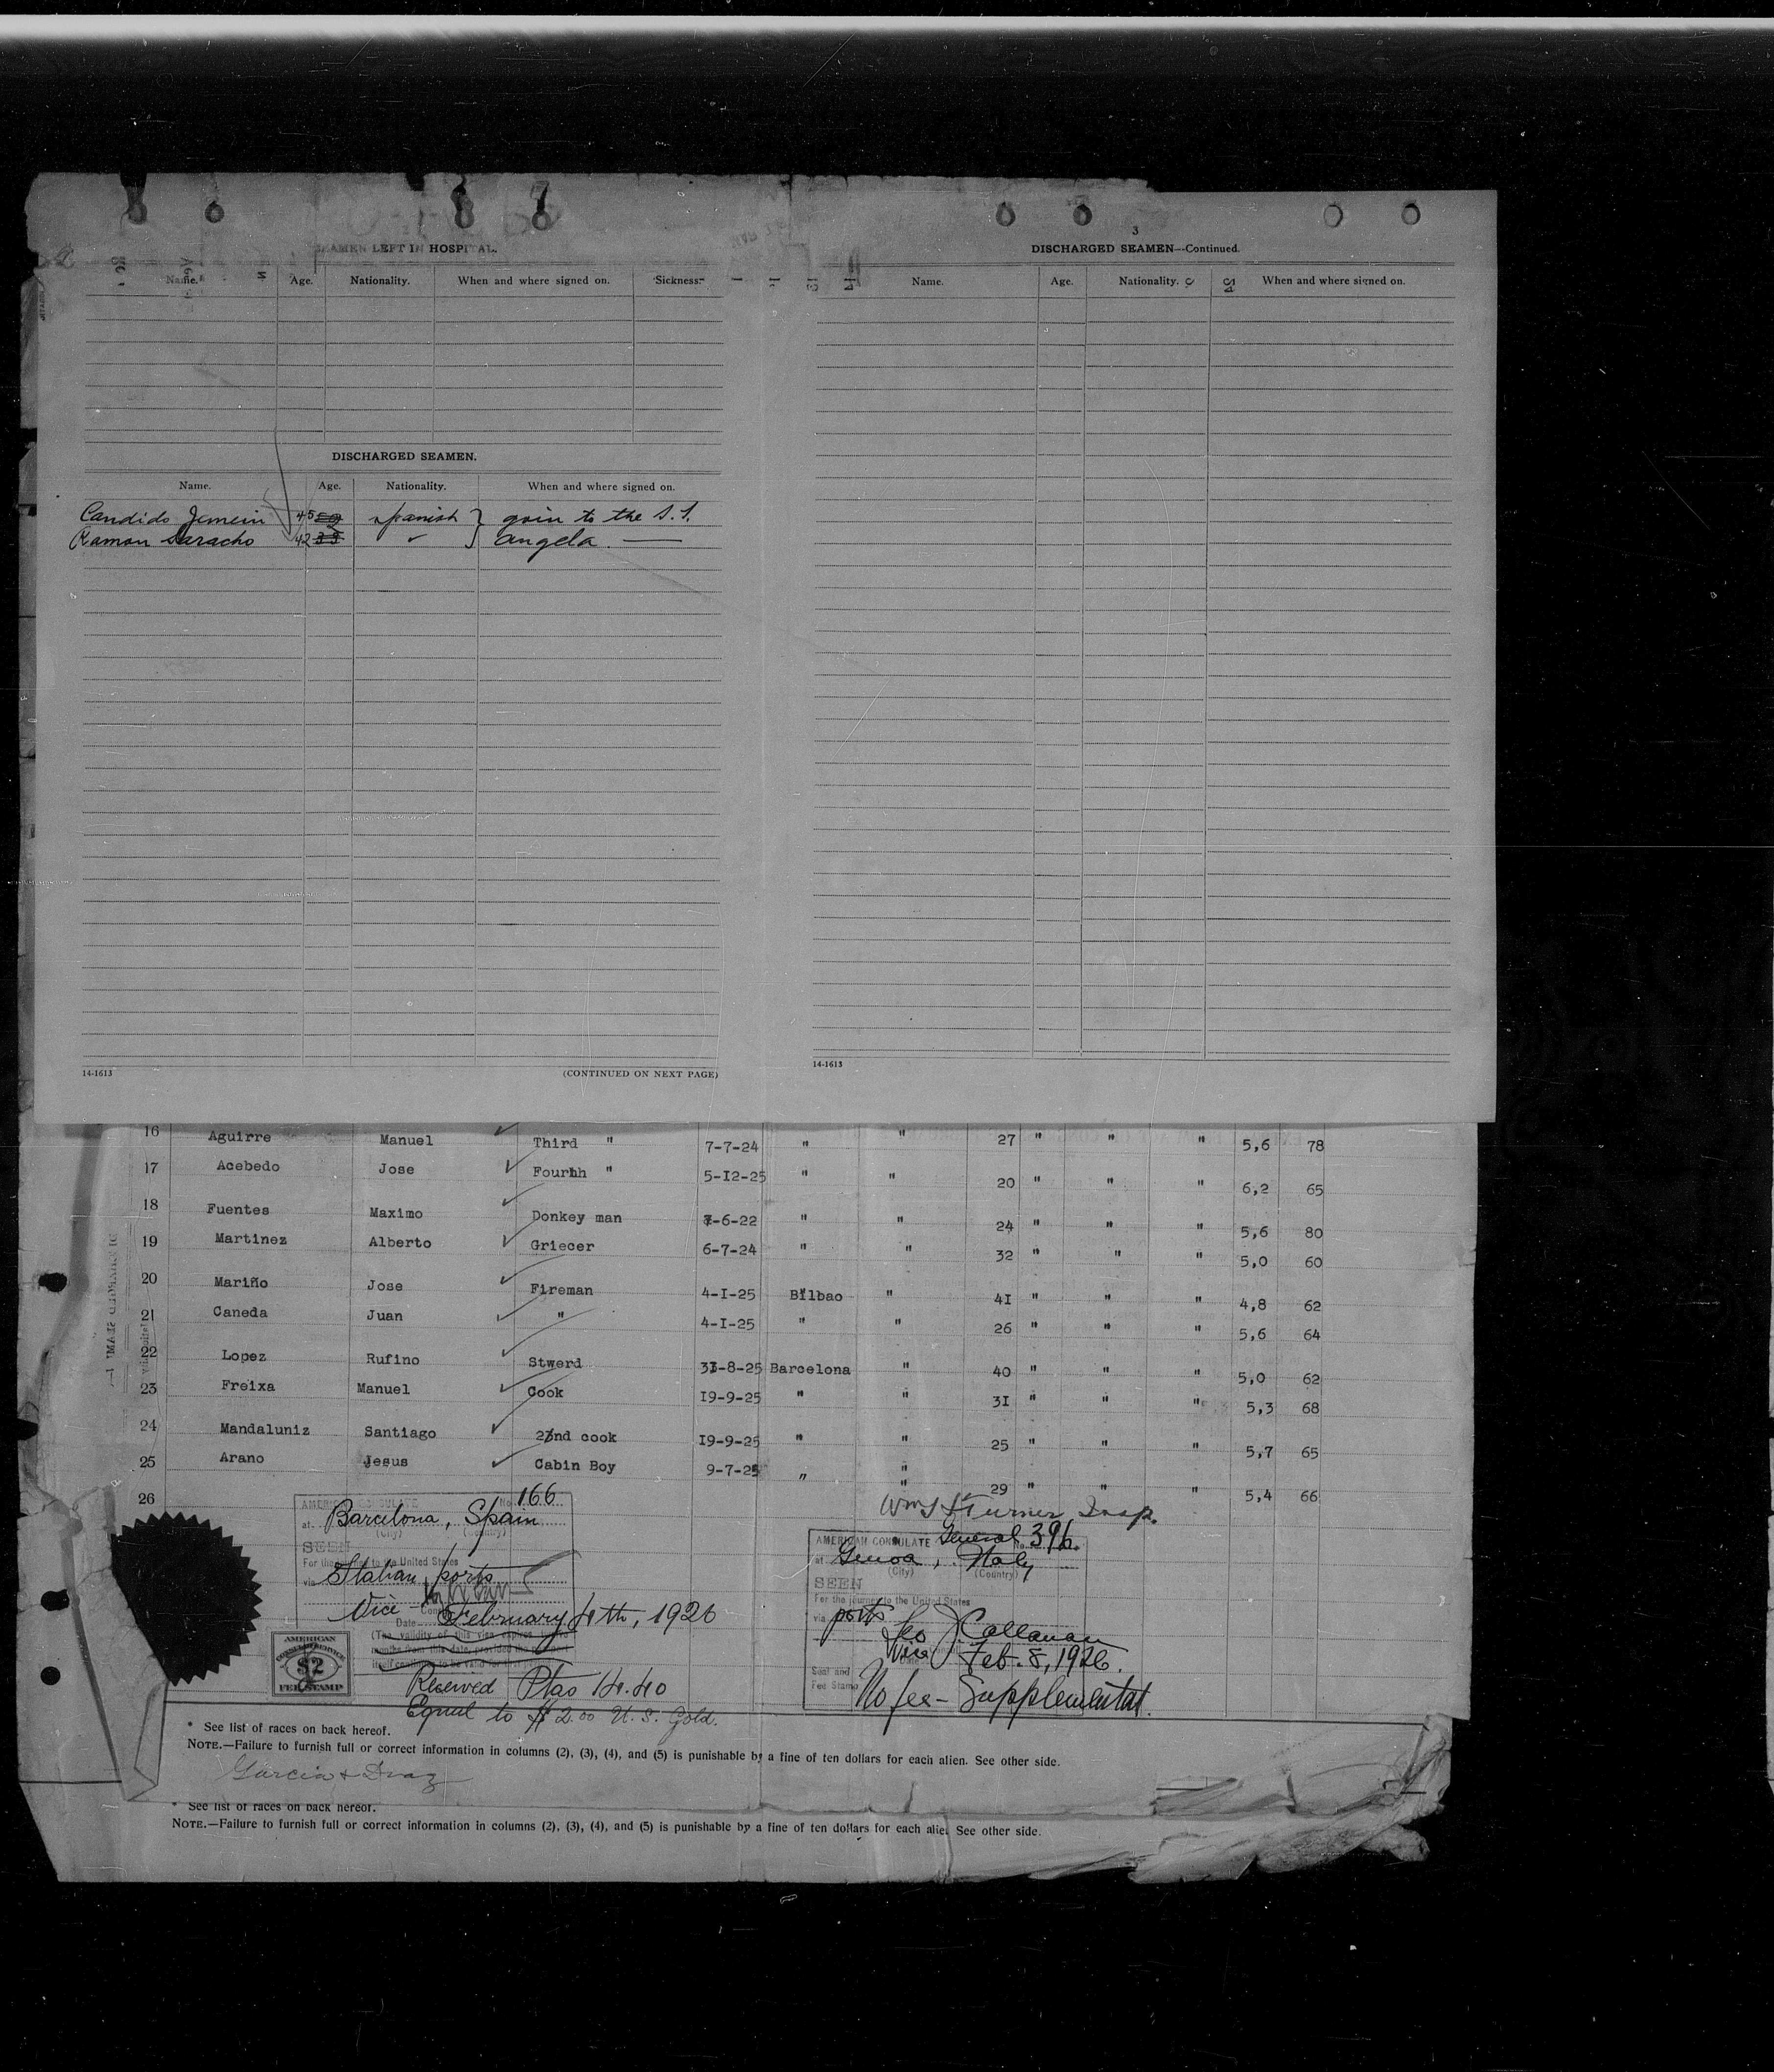 SEAMEN LEFT IN HOSPITAL.
Name. Age. Nationality. When and where signed on. Sickness.
DISCHARGED SEAMEN.
Name. Age. Nationality. When and where signed on.
Candido 45 spanish } goin to the S.S.
Ramon Saracho 42 33 " Angela.
14-1613 (CONTINUED ON NEXT PAGE)
3
DISCHARGED SEAMEN—Continued.
Name. Age. Nationality. When and where signed on.
14-1613
16 Aguirre Manuel Third " 7-7-24 " " 27 " " " 5,6 78
17 Acebedo Jose Fourhh " 5-I2-25 " " 20 " " " 6,2 65
18 Fuentes Maximo Donkey man 7-6-22 " " 24 " " " 5,6 80
19 Martinez Alberto Griecer 6-7-24 " " 32 " " " 5,0 60
20 Mariño Jose Fireman 4-I-25 Bilbao " 4I " " " 4,8 62
21 Caneda Juan " 4-I-25 " " 26 " " " 5,6 64
22 Lopez Rufino Stwerd -8-25 Barcelona " 40 " " " 5,0 62
23 Freixa Manuel Cook I9-9-25 " " 3I " " " 5,3 68
24 Mandaluniz Santiago 2nd cook I9-9-25 " " 25 " " " 5,7 65
25 Arano Jesus Cabin Boy 9-7-25 " " 29 " " " 5,4 66
26
Turner Insp.
No. 166
at Barcelona, Spain
(City) (Country)
SEEN
For the to the United States
via Italian ports
Vice
Date February 4th, 1926
(The validity of this visa expires
months from this date, provided the
AMERICAN
$2
FEE STAMP
Received Ptas 14.40
Equal to $2.00 U.S. Gold.
AMERICAN CONSULATE General No. 396
at Genoa, Italy
(City) (Country)
SEEN
For the journey to the United States
via ports
Leo J. Callanan
Vice
Feb. 8, 1926.
Seal and
Fee Stamp
No fee - Supplemental.
* See list of races on back hereof.
NOTE.—Failure to furnish full or correct information in columns (2), (3), (4), and (5) is punishable by a fine of ten dollars for each alien. See other side.
Garcia & Diaz
* See list of races on back hereof.
NOTE.—Failure to furnish full or correct information in columns (2), (3), (4), and (5) is punishable by a fine of ten dollars for each alien. See other side.